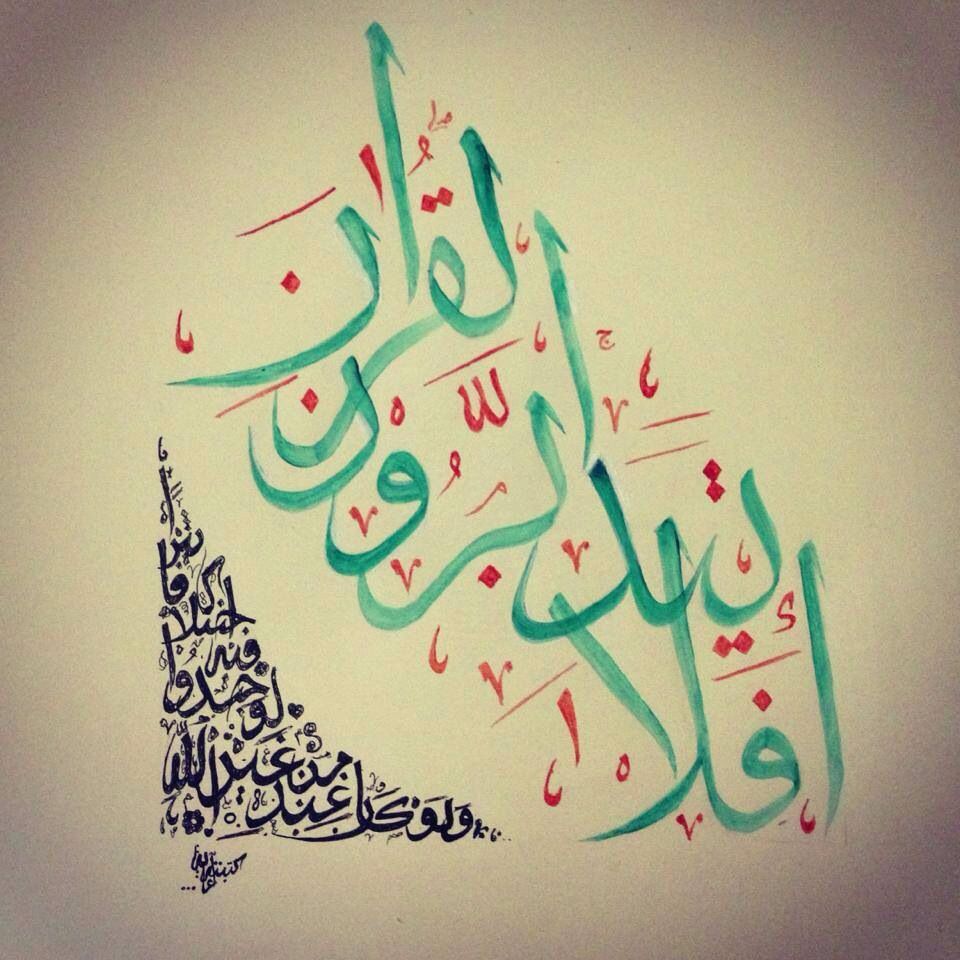 أفلا يتدبرون القرآن
ولو كان من عند غير الله
لوجدوا
فيه
اختلافا
كثيرا
كتبته